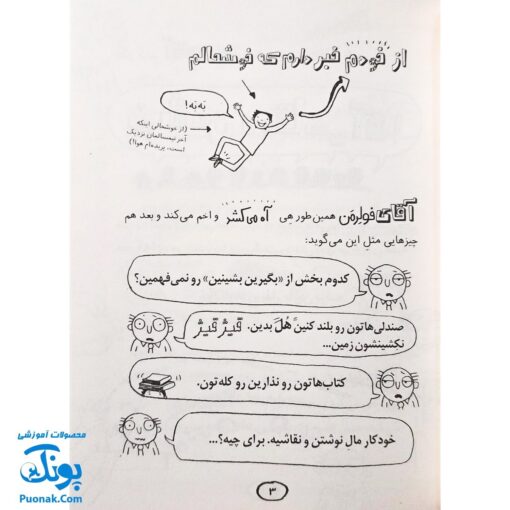 از خودم خبر دارم که خوشحالم
یَه یَه!
(از خوشحالیِ اینکه
آخر نیمسالمان نزدیک
است، پریده‌ام هوا!)
آقای فولِرمَن همین‌طور هِی آه می‌کشد و اخم می‌کند و بعد هم
چیزهایی مثل این می‌گوید:
کدوم بخش از «بگیرین بشینین» رو نمی‌فهمین؟
صندلی‌هاتون رو بلند کنین هُل بدین. قیژ قیژ
نکشینشون زمین...
کتاب‌هاتون رو نذارین رو کله‌تون.
خودکار مالِ نوشتن و نقاشیه. برای چیه؟...
۳
محصولات آموزشی
پونک
Puonak.Com